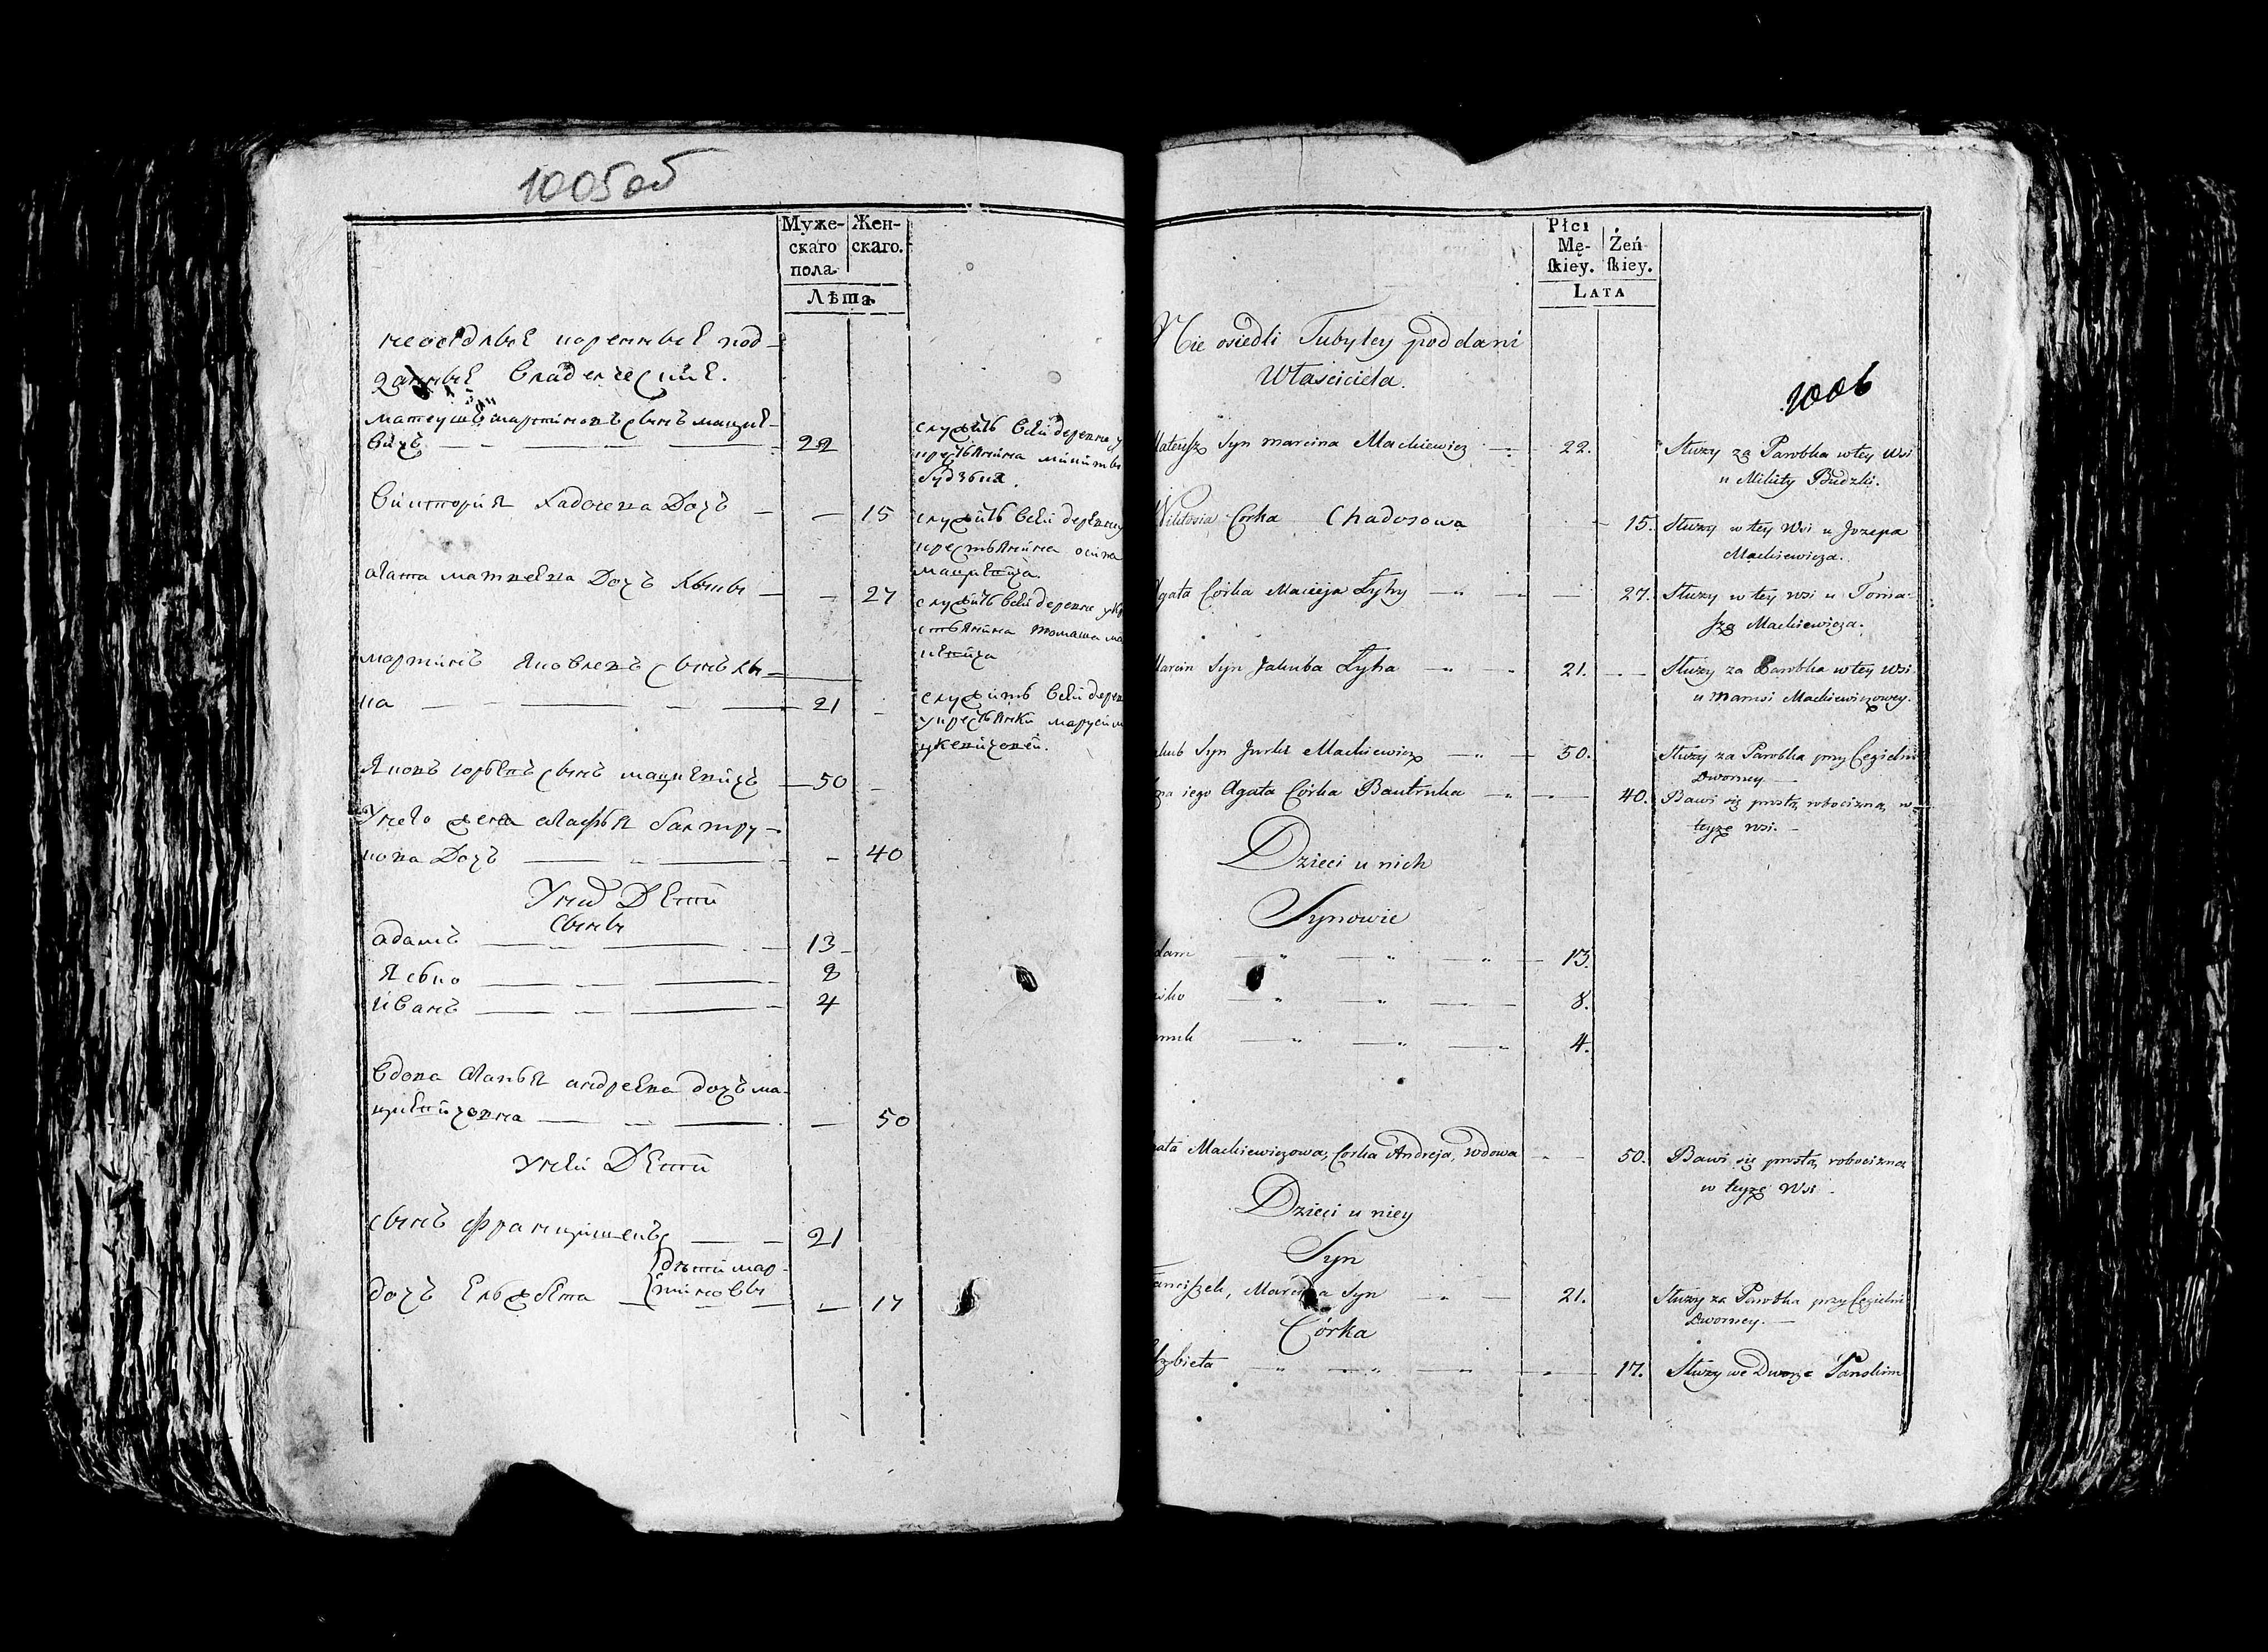 1005 об
Муже-
скаго
пола
Жен-
скаго.
Лѣта
неоседлые коренные под-
данные владелческие.
матеушъ мартиновъ сынъ мацке-
вичъ 22
служитъ всей деревне у
крестьянина микиты
будзька.
Виктория Хадосева Дочъ 15
служитъ всей деревне у
крестьянина осипа
мацкевича.
агата матвеева Дочъ лыки 27
служитъ всей деревне у кре
стьянина томаша ма
цкевича
мартинъ яковлевъ сынъ лы-
ка 21
служитъ всей деревне
у крестьянки маруси м
цкевичовой.
Яковъ юрьевъ сынъ мацкевичъ 50
У него жена агафья балтру-
кова Дочъ 40
У них Дети
сыны
адамъ 13
Ясько 8
иванъ 4
вдова агапья андреева дочъ ма-
цкевичовна 50
У ней Дети
сынъ францишекъ 21
дети мар-
тиновы
дочъ елжбета 17
Płci
Mę-
ſkiey.
Żeń
ſkiey.
LATA
1006
Nie osiedli Tubylcy poddani
Właściciela.
Mateuſz Syn Marcina Mackiewicz 22.
Służy za Parobka w tey Wsi
u Mikity Budzki.
Wiktoria Corka Chadosowa 15.
Służy w tey Wsi u Jozepa
Mackiewicza.
Agata Córka Macieja Łyky 27.
Służy w tey wsi u Toma-
sza Mackiewicza.
Marcin Syn Jakuba Łyka 21.
Służy za Parobka w tey Wsi
u Marusi Mackiewiczowey.
akub Syn Jurka Mackiewicz 50.
Służy za Parobka przy Cegielni
Dworney
na iego Agata Córka Bautruka 40.
Bawi się prostą robocizną w
teyże wsi.
Dzieci u nich
Synowie
dam 13.
śko 8.
4.
gata Mackiewiczowa, Corka Andreja, Wdowa 50.
Bawi się prostą robocizną
w teyże Wsi
Dzieci u niey
Syn
ranciſzek, Marcina Syn 21.
Służy za Parobka przy Cegielni
Dworney.
Córka
lżbieta 17.
Służy we Dworze Pańskim